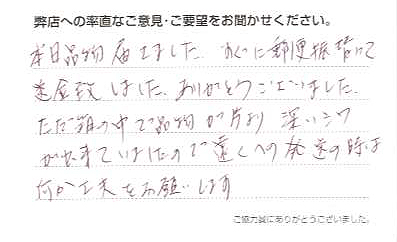 弊店への率直なご意見・ご要望をお聞かせください。
本日品物届きました。すぐに郵便振替にて
送金致しました。ありがとうございました。
ただ箱の中で品物が片より 深いシワ
が出来ていましたので遠くへの発送の時は
何か工夫をお願いします
ご協力誠にありがとうございました。